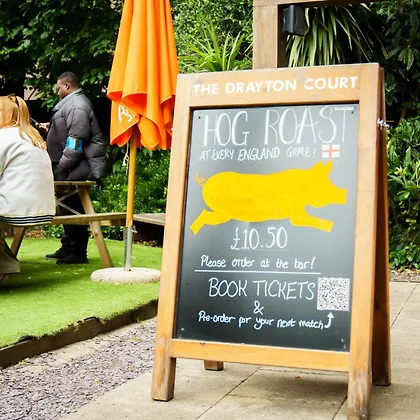 THE DRAYTON COURT
HOG ROAST
AT EVERY ENGLAND GAME!
£10.50
Please order at the bar!
BOOK TICKETS
&
Pre-order for your next match